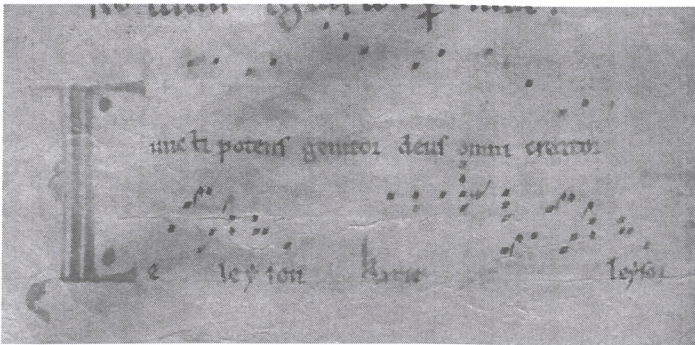 Cuncti potens genitor deus omni creator
e ley son kirie leyson